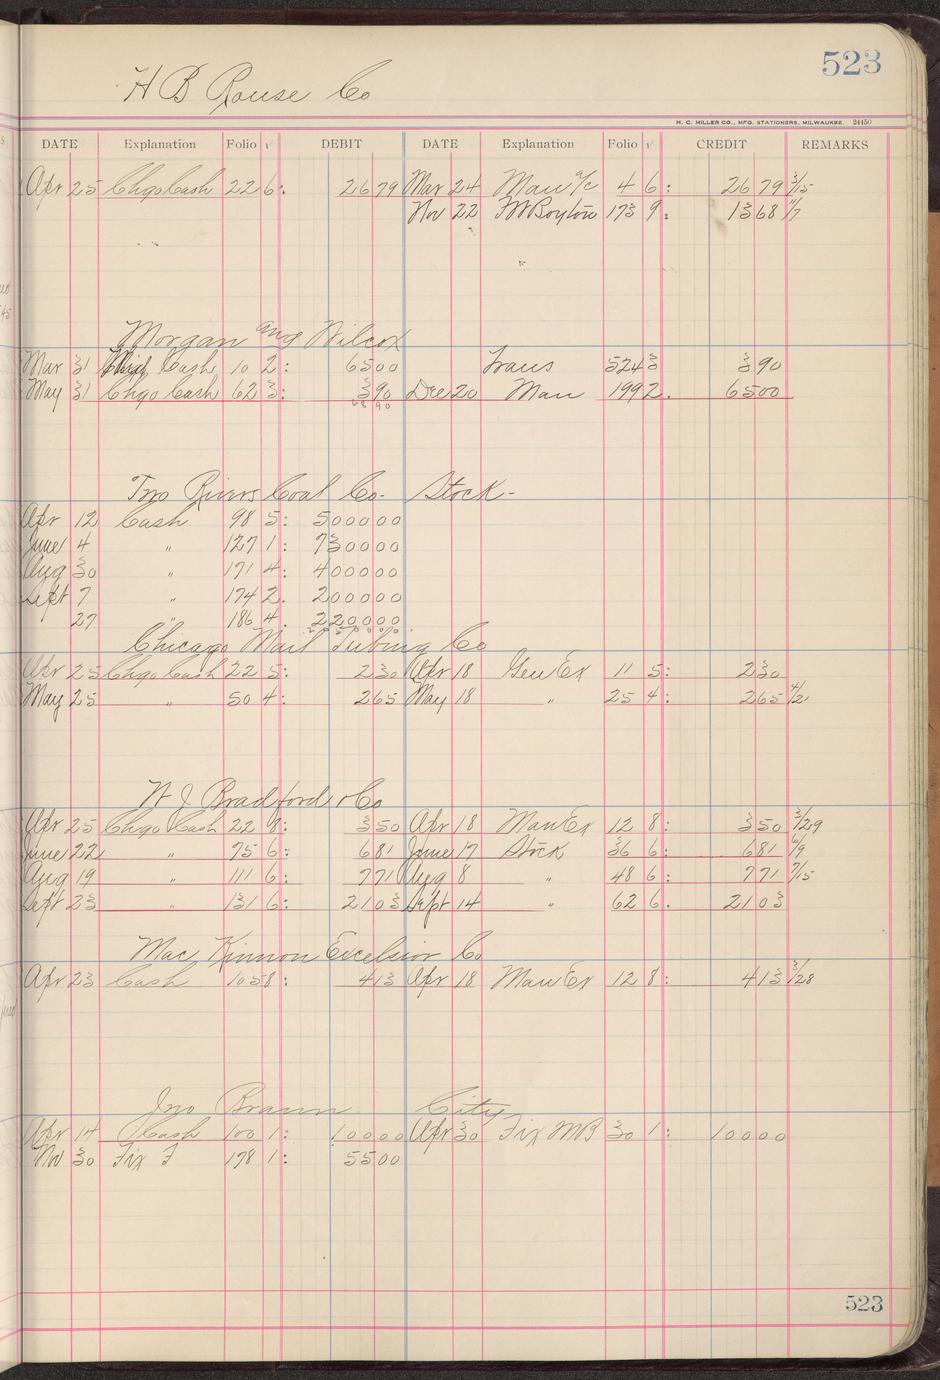 523
H B Rouse Co
H. C. MILLER CO., MFG. STATIONERS, MILWAUKEE. 24450
DATE Explanation Folio √ DEBIT DATE Explanation Folio √ CREDIT REMARKS
Apr 25 Chgo Cash 22 6: 26 79 Mar 24 Man a/c 4 6: 26 79 3/15
Nov 22 FW Boyton 173 9. 13 68 11/7
Morgan and Wilcox
Mar 31 Cash 10 2: 65 00 Trans 524 3 3 90
May 31 Chgo Cash 62 3: 3 90 Dec 20 Man 199 2. 65 00
68 90
Two Rivers Coal Co. Stock-
Apr 12 Cash 98 5: 5000 00
June 4 " 127 1: 7300 00
Aug 30 " 171 4: 4000 00
Sept 7 " 174 2. 2000 00
27 " 186 4. 2200 00
Chicago Mail Tubing Co
Apr 25 Chgo Cash 22 5: 2 30 Apr 18 Gen Ex 11 5: 2 30
May 25 " 50 4: 2 65 May 18 " 25 4: 2 65 4/21
W J Bradford & Co
Apr 25 Chgo Cash 22 8: 3 50 Apr 18 Man Ex 12 8: 3 50 3/29
June 22 " 75 6: 6 81 June 17 Stock 36 6: 6 81 6/9
Aug 19 " 111 6: 7 71 Aug 8 " 48 6: 7 71 7/15
Sept 23 " 131 6: 21 03 Sept 14 " 62 6. 21 03
Mac Kinnon Excelsior Co
Apr 23 Cash 105 8: 4 13 Apr 18 Man Ex 12 8: 4 13 3/28
Jno Braun City
Apr 14 Cash 100 1: 100 00 Apr 30 Fix MB 30 1: 100 00
Nov 30 Fix F 178 1: 55 00
523